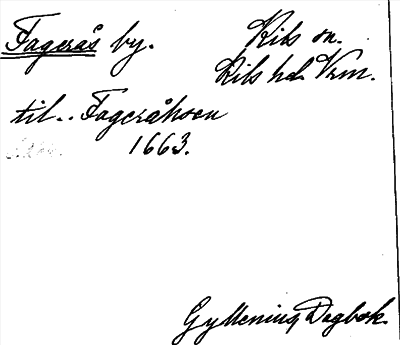 Fagerås by.
Kils sn.
Kils hd. Vrm.
til.. Fageråhsen
1663.
Gyllenius Dagbok.